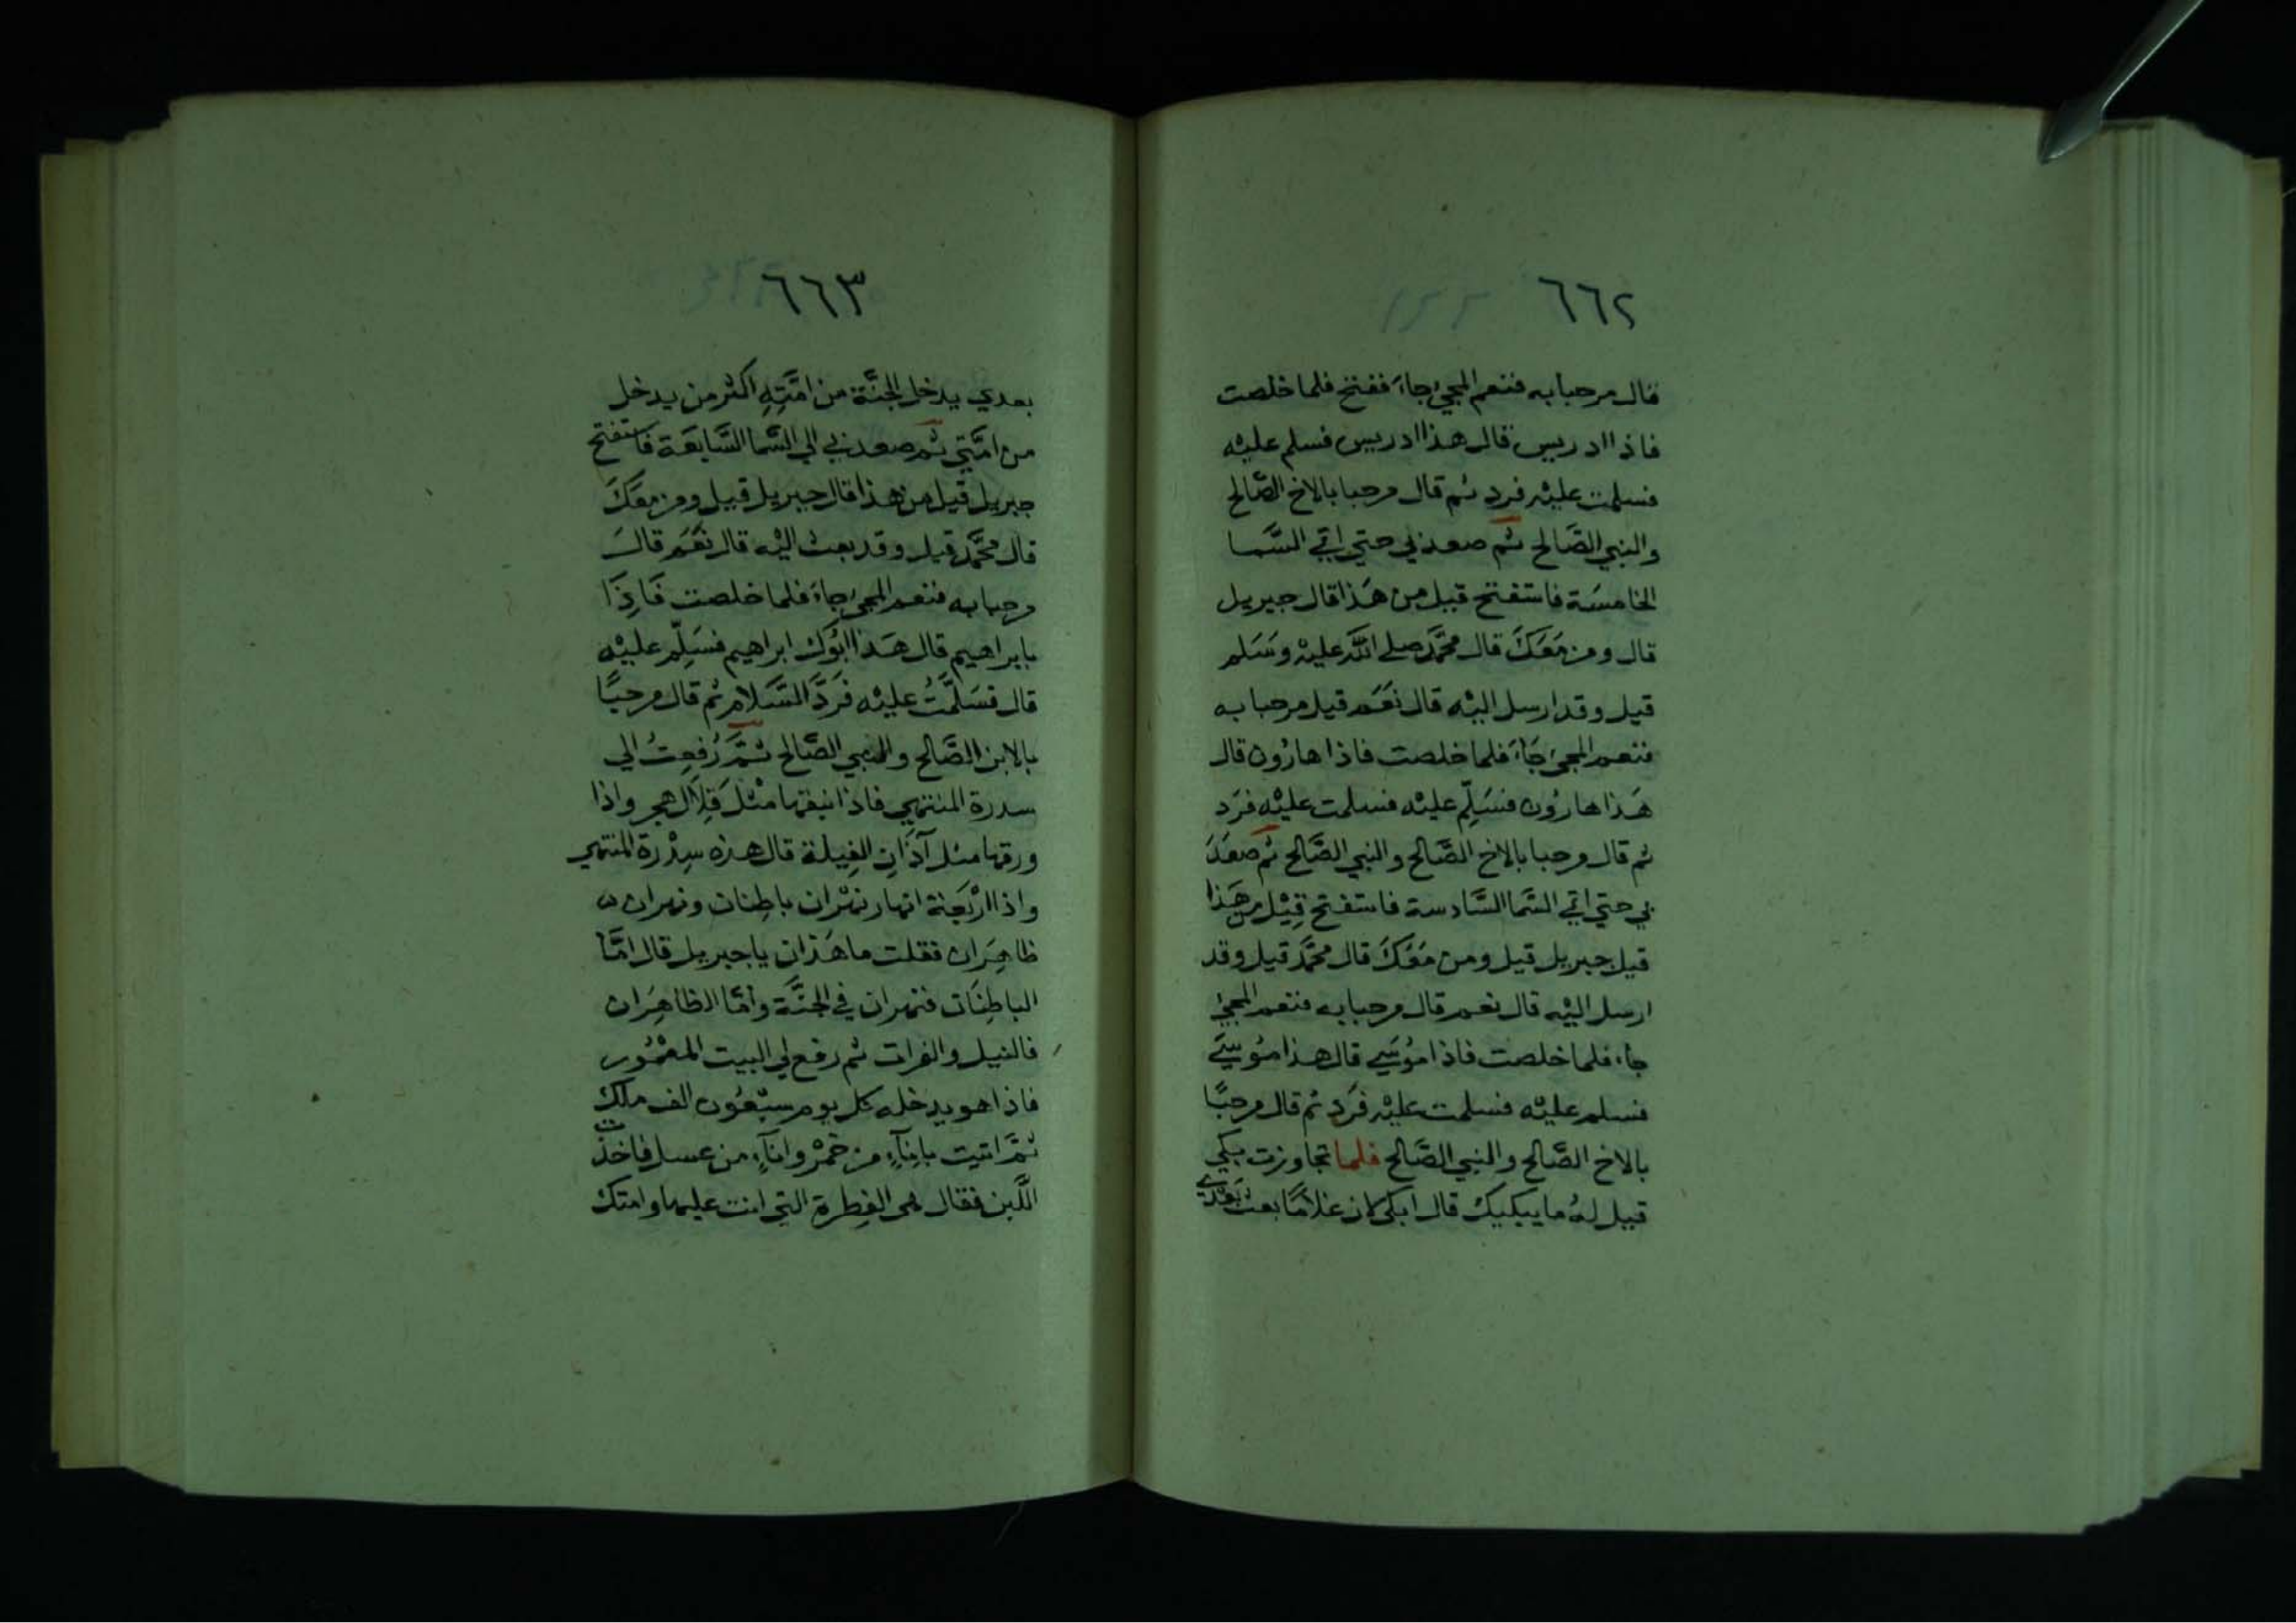 ٦٦٢
قال مرحبا به فنعم المجيُ جاءَ ففتح فلما خلصت
فاذا ادريس قال هذا ادريس فسلم عليْه
فسلمت عليْه فرد ثم قال مرحبا بالاخ الصَّالح
والنبي الصَّالح ثم صعد بي حتي اتي السَّما
الخامسَة فاستفتح قيل من هَذا قال جبريل
قال ومن مَعَكَ قال محمَّد صلى اللَّه عليْه وسَلم
قيل وقد ارسل اليْه قال نعَم قيل مرحبا به
فنعم المجئ جَاءَ فلما خلصت فاذا هارُون قال
هَذا هارُون فسَلِّم عليْه فسلمت عليْه فرَد
ثم قال مرحبا بالاخ الصَّالح والنبي الصَّالح ثم صعَدَ
بي حتي اتي السَّما السَّادسة فاستفتح قِيْل من هَذا
قيل جبريل قيل ومن مَعَكَ قال محمَّد قيل وقد
ارسل اليْه قال نعم قال مرحبا به فنعم المجئ
جاء فلما خلصت فاذا مُوسَي قال هذا مُوسَي
فسلم عليْه فسلمت عليْه فرَد ثم قال مرحبًا
بالاخ الصَّالح والنبي الصَّالح فلما تجاوزت بكي
قيل لهُ ما يبكيك قال ابكي لان غلامًا بعث بَعْدي
٦٦٣
بعدي يدخل الجنَّة من امَّتِهِ اكثر من يدخل
من امَّتي ثم صعد بي الي السَّما السَّابعَة فاستفتح
جبريل قيل من هذا قال جبريل قيل ومن معَكَ
قال محَمَّد قيل وقد بعث اليْه قال نعَم قالَ
مرحبا به فنعم المجئ جاءَ فلما خلصت فَاِذَا
بابراهيم قال هَذا اَبُوك ابراهيم فسَلِّم عليْه
قال فسَلَّمتُ عليْه فَرَدَّ السَّلام ثم قال مرحبًا
بالابن الصَّالح والنبي الصَّالح ثمَّ رُفِعتُ الي
سدرة المنتهي فاذا نبقها مثْل قِلَال هجر واذا
ورقها مثل آذَانِ الفِيلة قال هذه سِدْرة المنتهي
واذا ارْبَعَة انهار نهْران باطِنان ونهران
ظاهِرَان فقلت ما هَذان يا جبريل قال امَّا
الباطِنَان فنهران في الجنَّة وأمَّا الظاهِرَان
فالنيل والفرات ثم رفع لي البيت المعْمُور
فاذا هو يدخله كل يوم سبْعُون الف ملك
ثمَّ اتيت بانِآءٍ من خمْر وانآءٍ من عسل فاخذت
اللَّبن فقال هي الفِطرة التي انت عليها وامتك